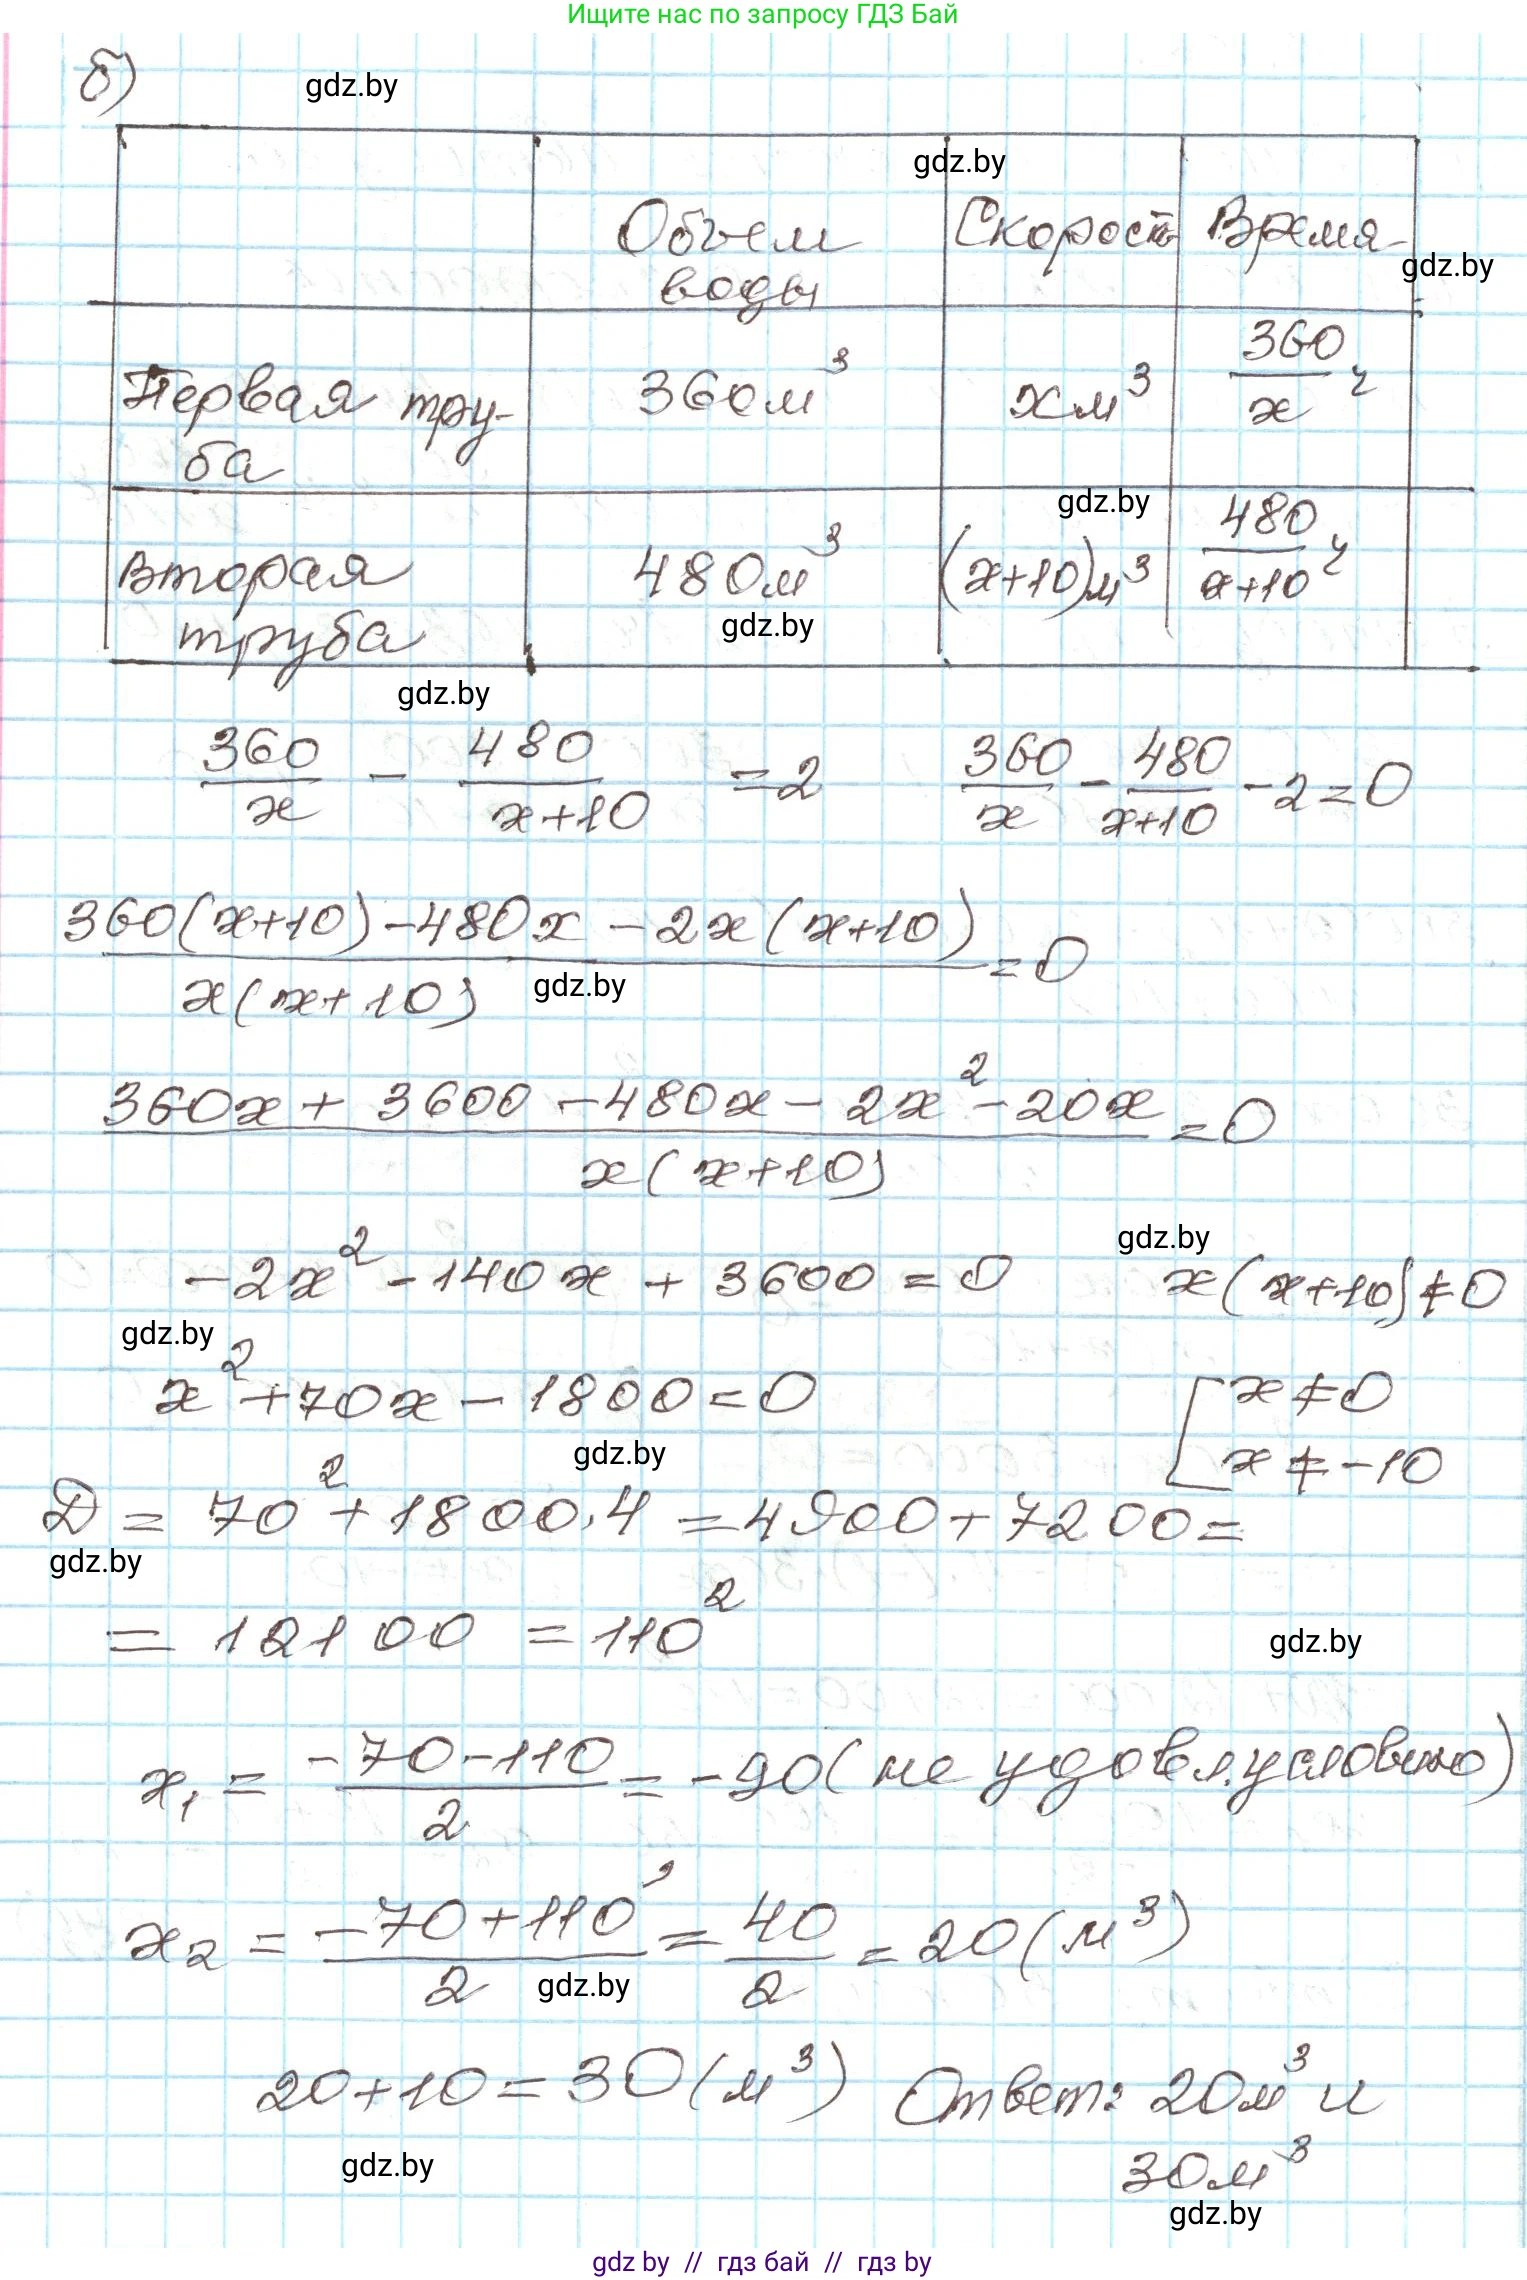 Ищите нас по запросу ГДЗ Бай
б)
gdz.by
gdz.by
Объем воды | Скорость | Время
gdz.by
Первая тру-ба | 360м³ | xм³ | 360/x ч
gdz.by
вторая труба | 480м³ | (x+10)м³ | 480/(x+10) ч
gdz.by
gdz.by
360/x - 480/(x+10) = 2     360/x - 480/(x+10) - 2 = 0
(360(x+10) - 480x - 2x(x+10)) / (x(x+10)) = 0
gdz.by
(360x + 3600 - 480x - 2x² - 20x) / (x(x+10)) = 0
gdz.by
-2x² - 140x + 3600 = 0     x(x+10) ≠ 0
gdz.by
x² + 70x - 1800 = 0     [ x ≠ 0
gdz.by     x ≠ -10
D = 70² + 1800·4 = 4900 + 7200 =
gdz.by
= 12100 = 110²
gdz.by
x₁ = (-70-110)/2 = -90 (не удовл. условию)
x₂ = (-70+110)/2 = 40/2 = 20 (м³)
gdz.by
20+10 = 30 (м³)  Ответ: 20м³ и
30м³
gdz.by
gdz.by
gdz by // гдз бай // гдз by